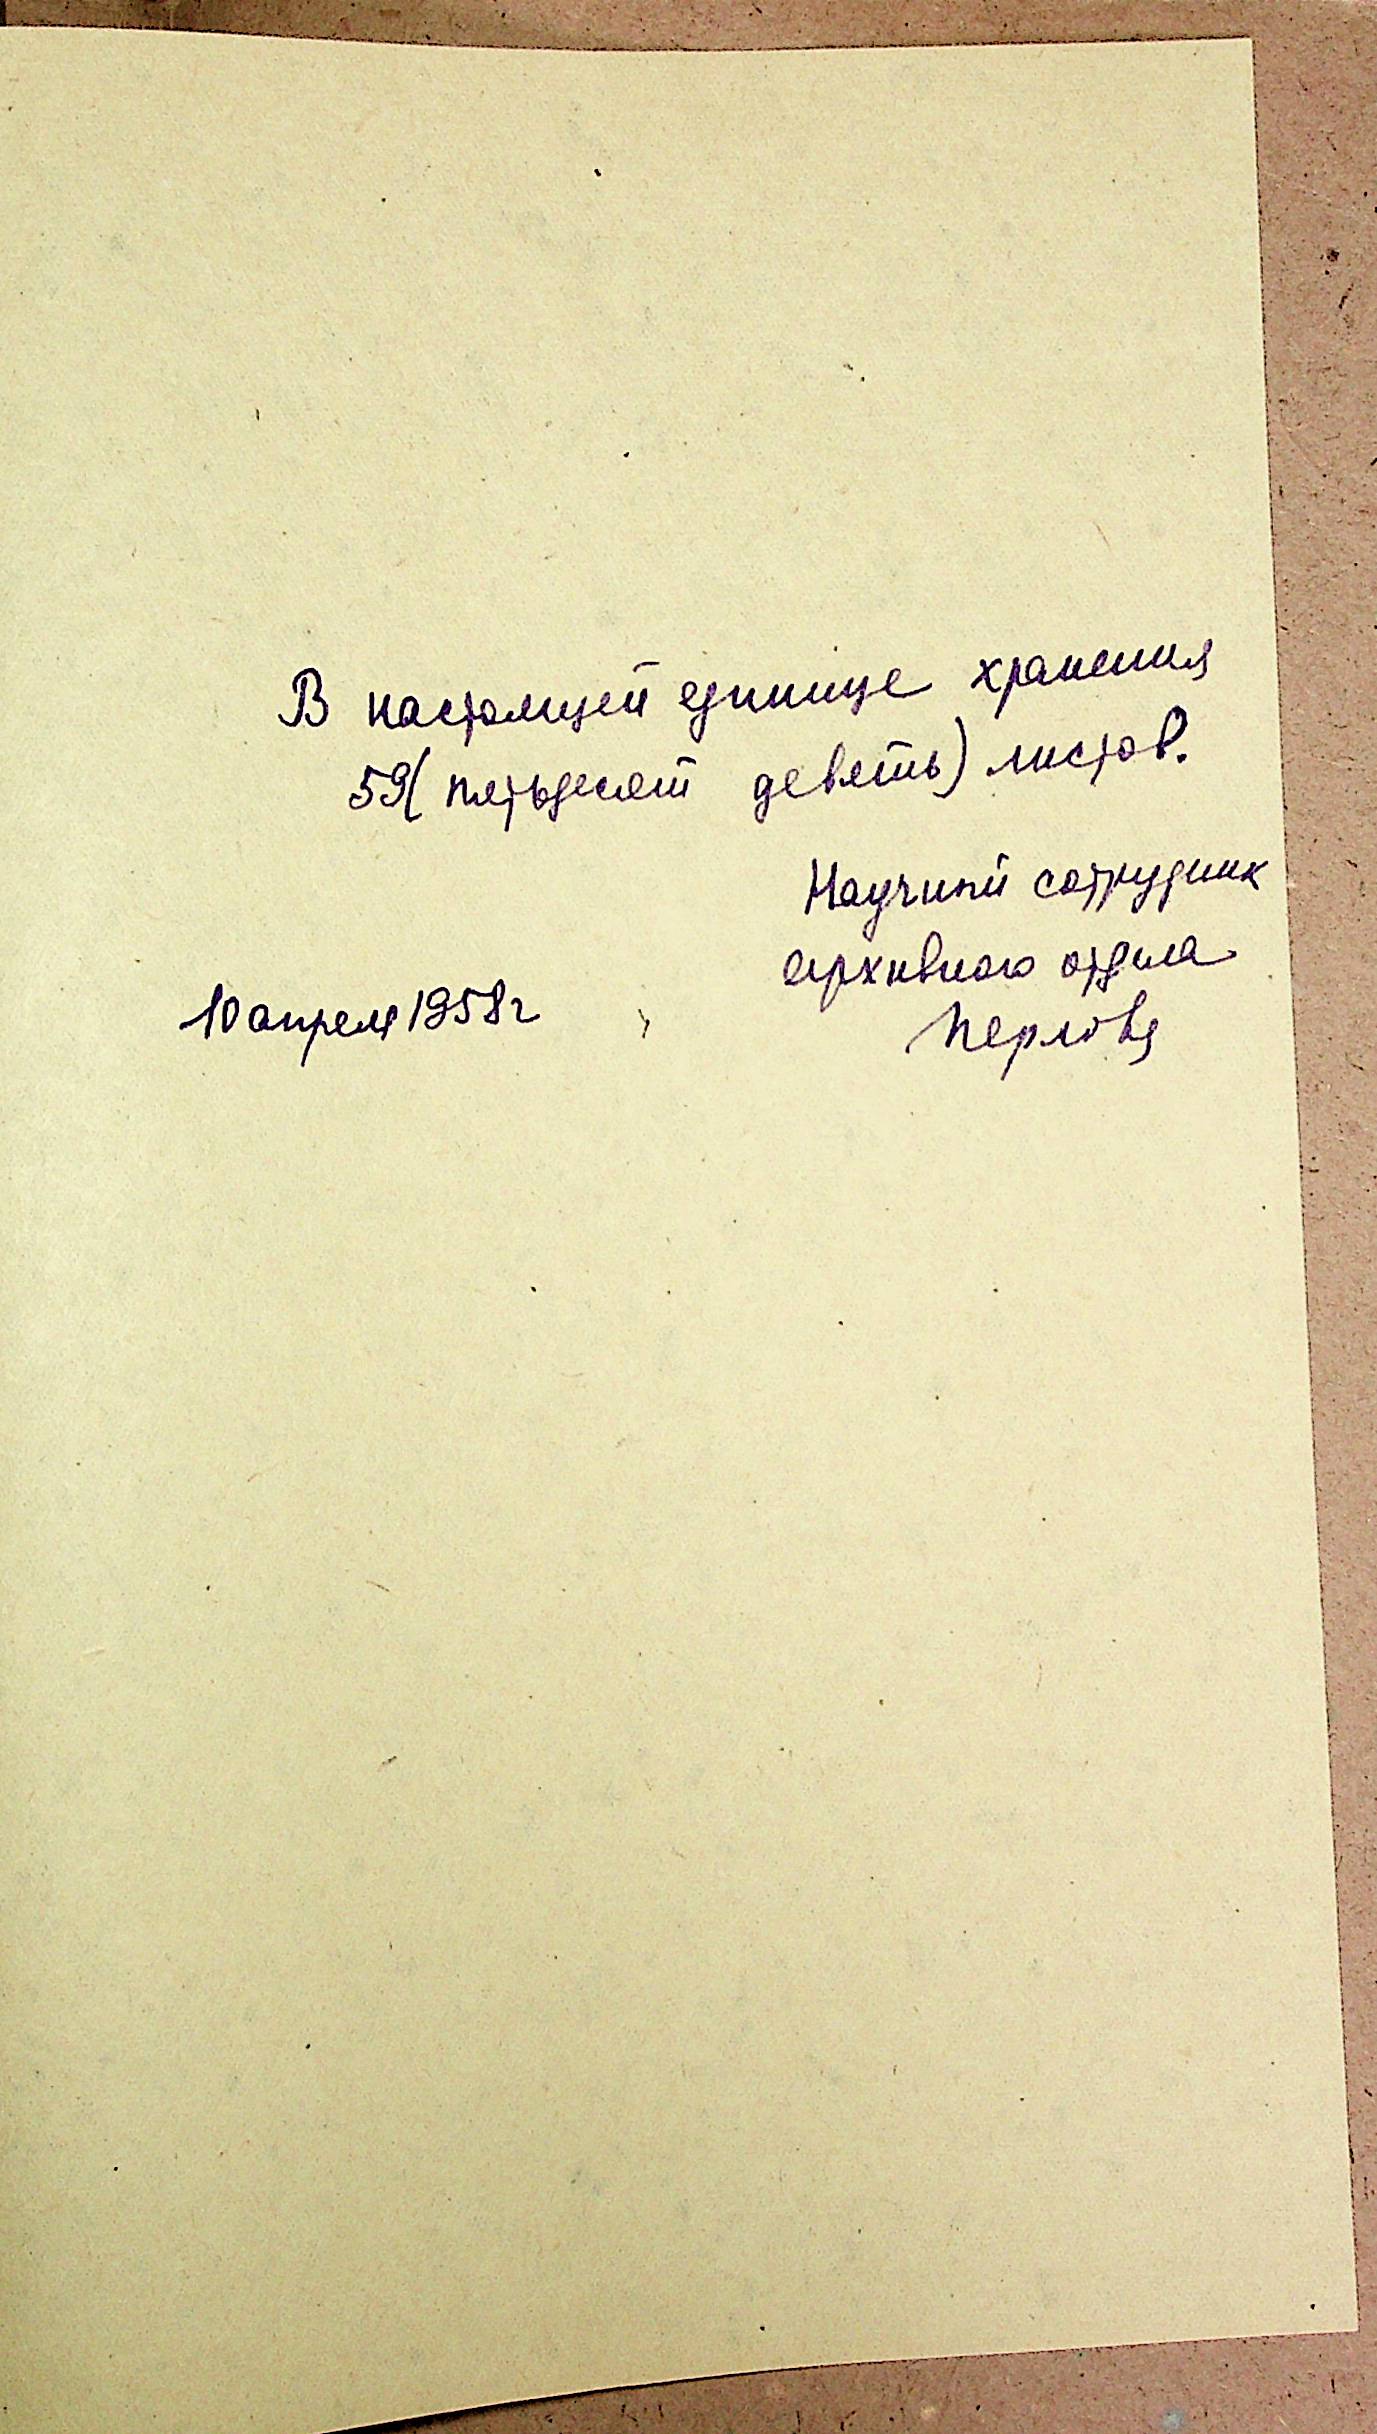 В настоящей единице хранения
59 (пятьдесят девять) листов.
Научный сотрудник
архивного отдела
10 апреля 1958 г
Перлова